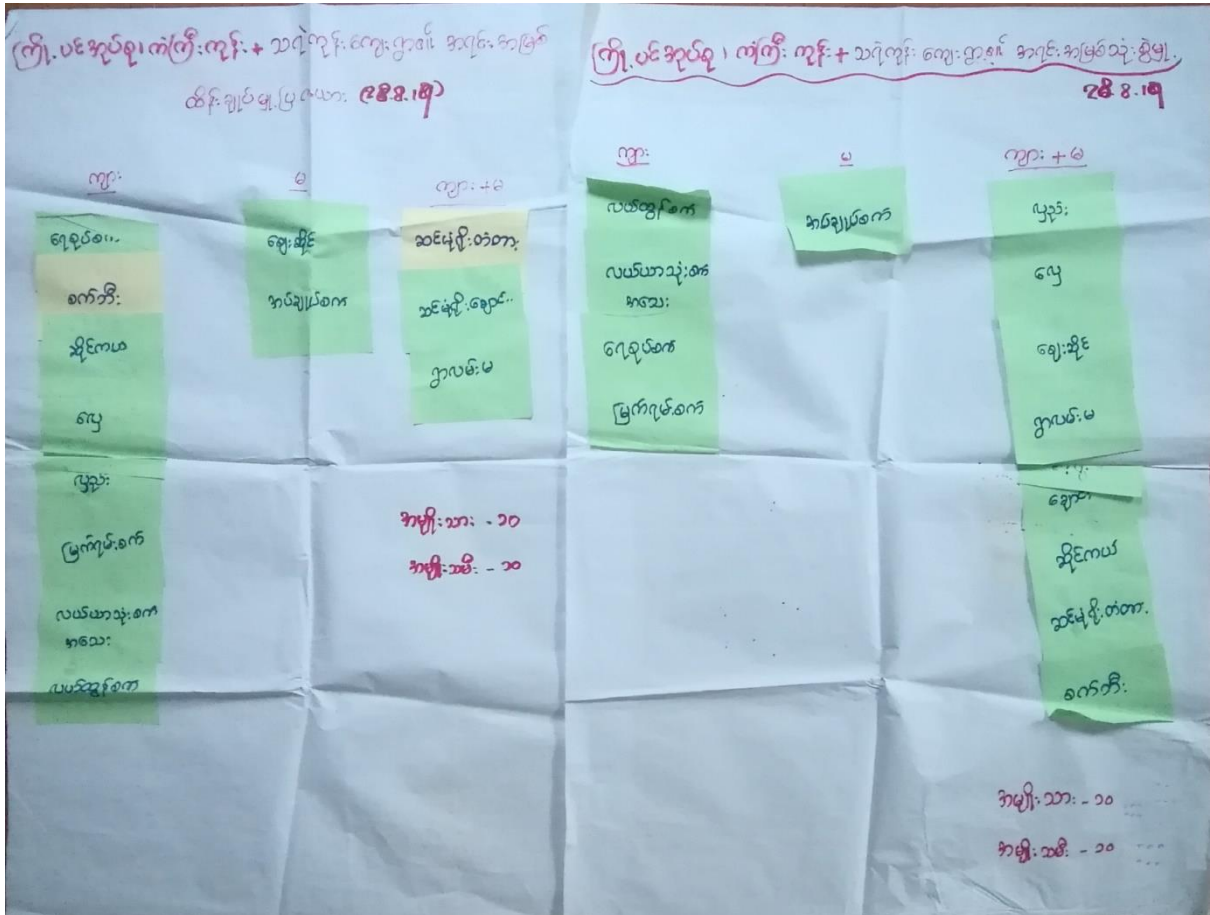 ကြို့ပင်အုပ်စု၊ ကံကြီးကုန်း + သရဲကုန်း ကျေးရွာ၏ အရင်းအမြစ်
ထိန်းချုပ်မှုပြဇယား (28.8.19)
ကျား
ရေစုပ်စက်
စက်ဘီး
ဆိုင်ကယ်
လှေ
လှည်း
မြက်ရမ်းစက်
လယ်ယာသုံးစက်
အသေး
လယ်ထွန်စက်
မ
ဈေးဆိုင်
အပ်ချုပ်စက်
ကျား + မ
ဆင်မုံရိုးတံတား
ဆင်မုံရိုးချောင်း
ရွာလမ်းမ
အမျိုးသား - ၁၀
အမျိုးသမီး - ၁၀
ကြို့ပင်အုပ်စု၊ ကံကြီးကုန်း + သရဲကုန်း ကျေးရွာ၏ အရင်းအမြစ်သုံးစွဲမှု
28.8.19
ကျား
လယ်ထွန်စက်
လယ်ယာသုံးစက်
အသေး
ရေစုပ်စက်
မြက်ရမ်းစက်
မ
အပ်ချုပ်စက်
ကျား + မ
လှည်း
လှေ
ဈေးဆိုင်
ရွာလမ်းမ
ချောင်း
ဆိုင်ကယ်
ဆင်မုံရိုးတံတား
စက်ဘီး
အမျိုးသား - ၁၀
အမျိုးသမီး - ၁၀